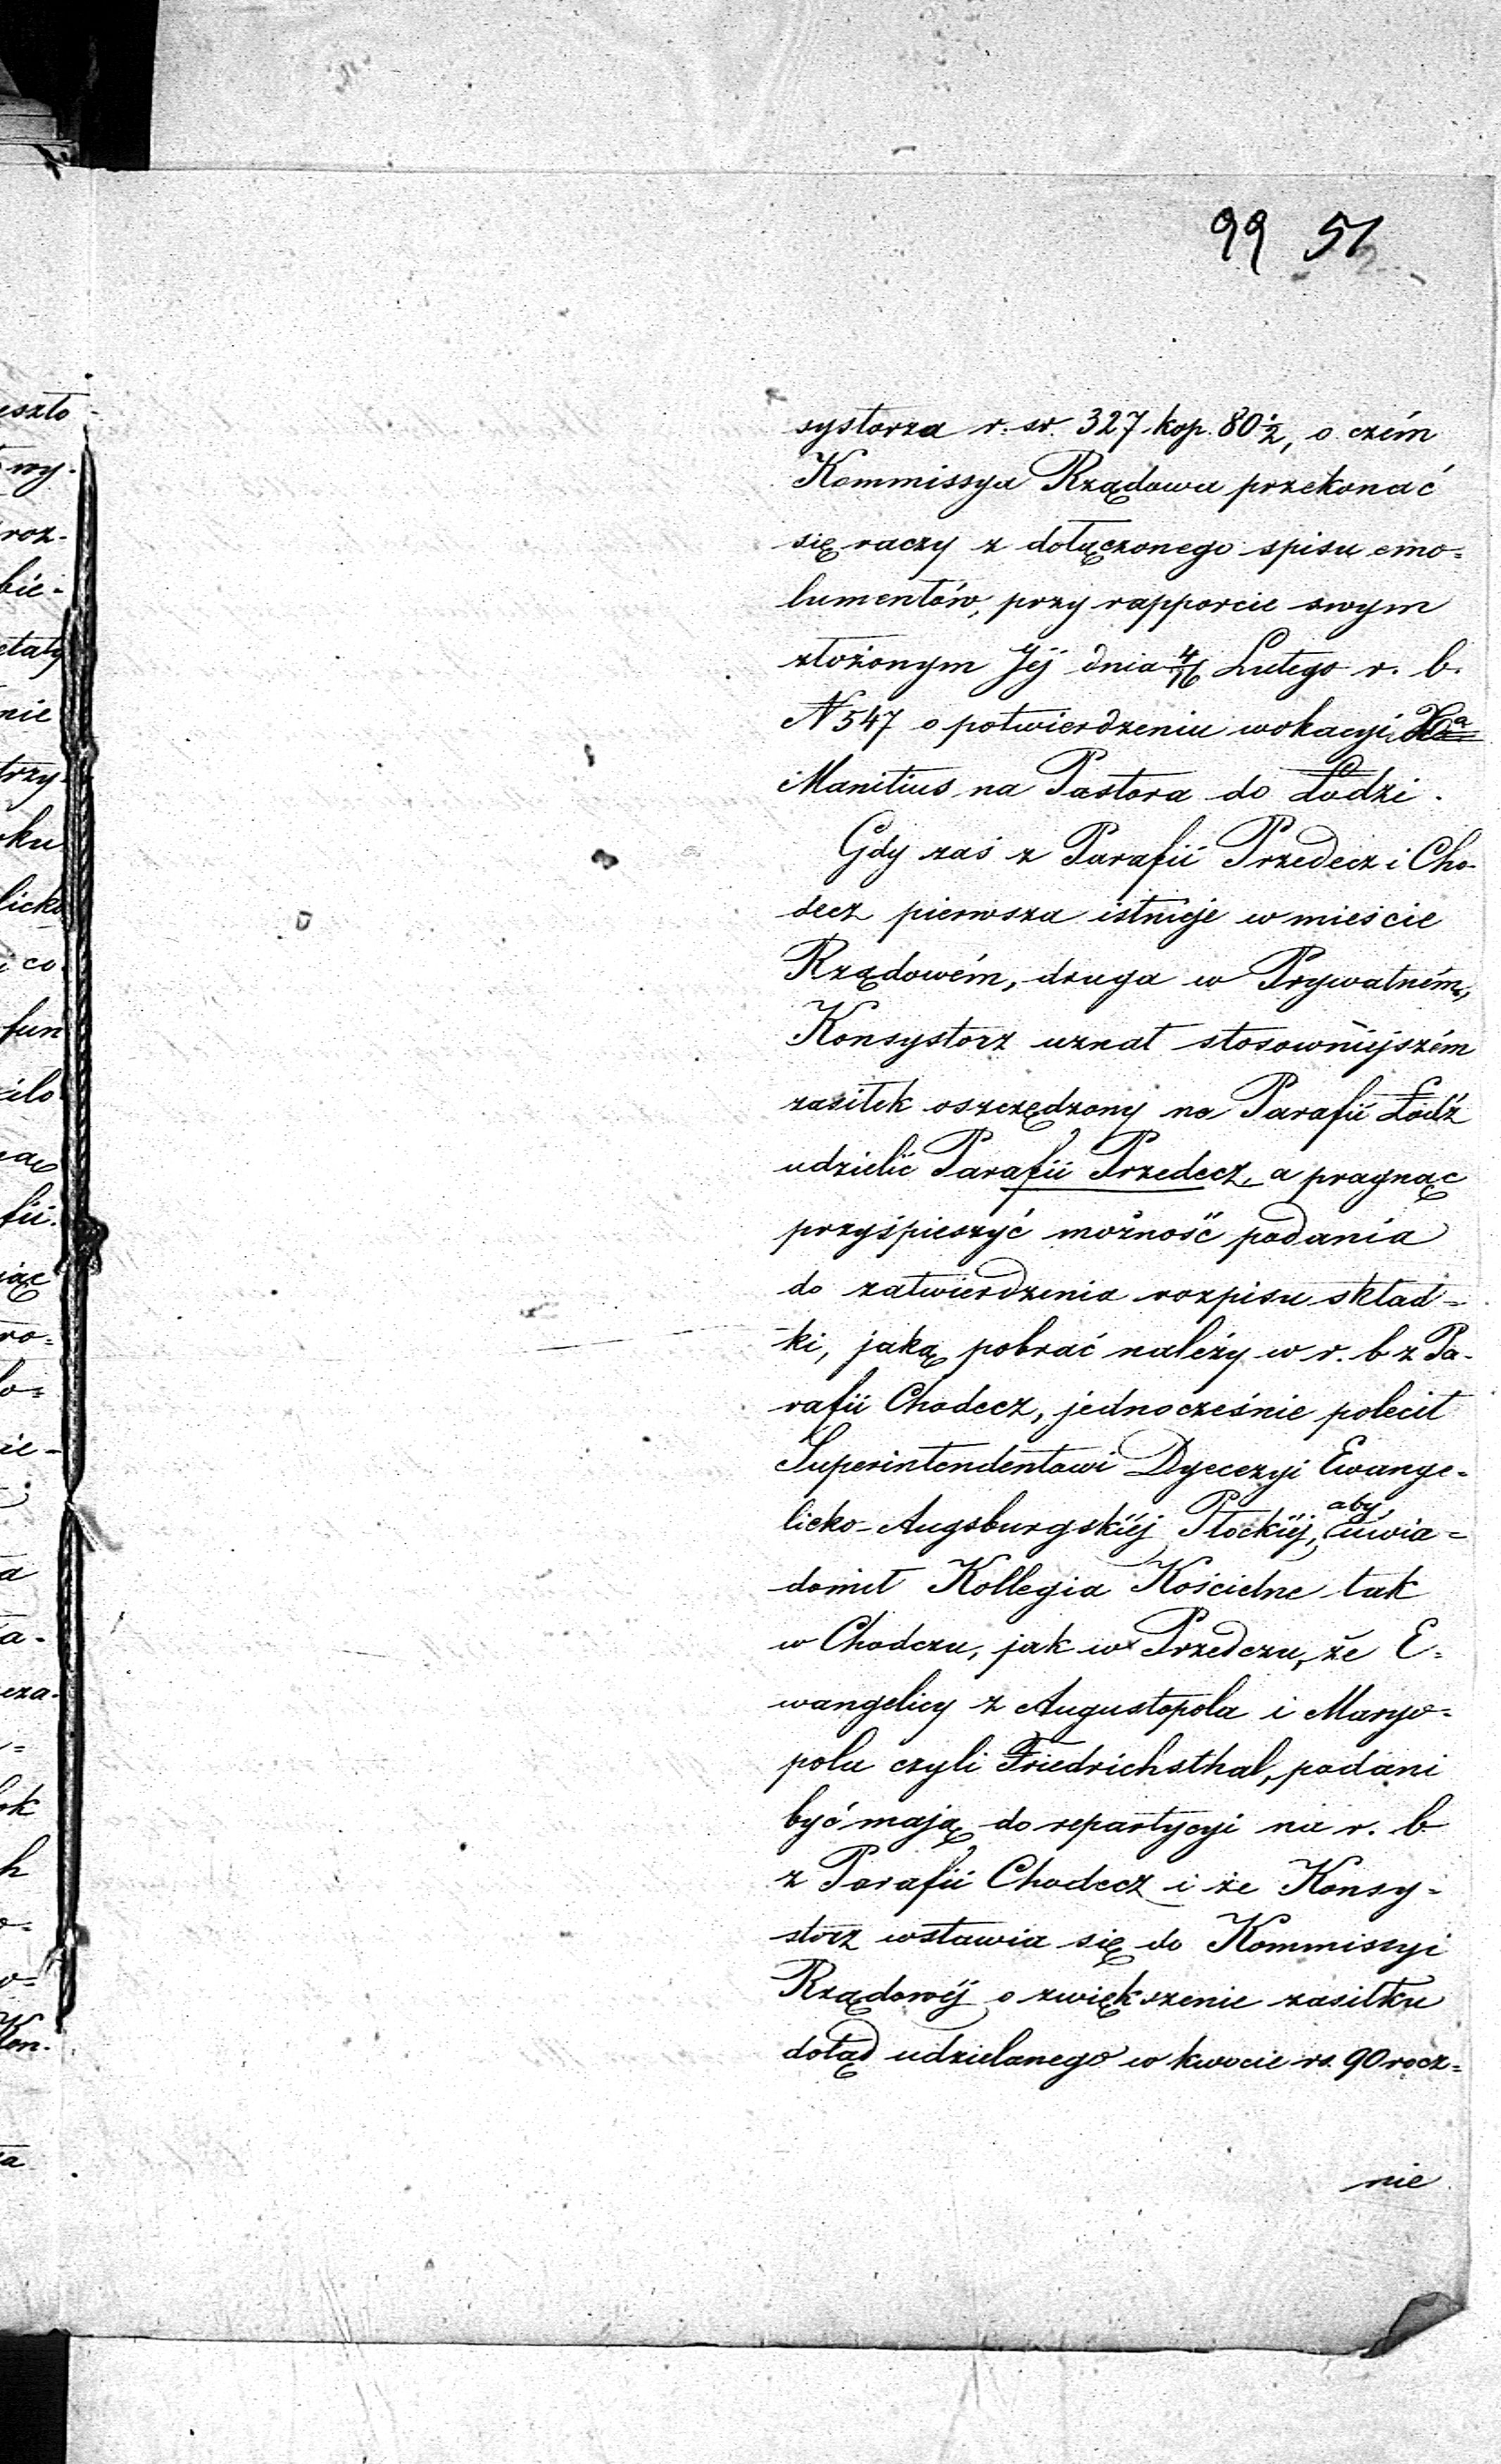 99 51
systorza r. sr. 327 kop. 80½, o czém
Kommissya Rządowa przekonać
się raczy z dołączonego spisu emo=
lumentów, przy rapporcie swym
złożonym Jéj dnia 4/16 Lutego r. b.
N 547 o potwierdzeniu wokacyi Xa
Manitius na Pastora do Łodzi.
Gdy zaś z Parafii Przedecz i Cho-
decz pierwsza istnieje w mieście
Rządowém, druga w Prywatném,
Konsystorz uznał stosowniejszém
zasiłek oszczędzony na Parafii Łódź
udzielić Parafii Przedecz, a pragnąc
przyśpieszyć możność podania
do zatwierdzenia rozpisu skład=
ki, jaką pobrać należy w r. b z Pa-
rafii Chodecz, jednocześnie polecił
Superintendentowi Dyecezyi Ewange=
licko-Augsburgskiéj Płockiéj, aby uwia=
domił Kollegia Kościelne tak
w Chodczu, jak w Przedczu, że E=
wangelicy z Augustopola i Maryo=
pola czyli Friedrichsthal, podani
być mają do repartycyi na r. b
z Parafii Chodecz i że Konsy=
storz wstawia się do Kommissyi
Rządowéj o zwiększenie zasiłku
dotąd udzielanego w kwocie rs. 90 rocz=
nie
eszło-
wy-
roz-
bie-
etaty
nie
trzy-
oku
licko
i co
fun
fii.
iąc
ro=
lo=
ie-
a
a-
cza-
ok
h
o=
Kon-
a